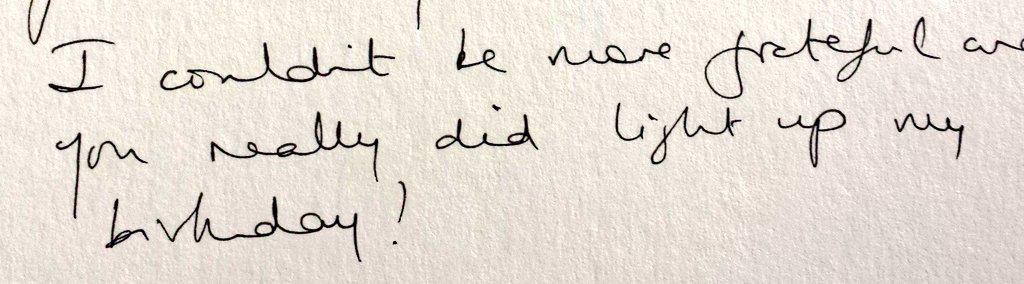 I couldn't be more grateful
you really did light up my
birthday!